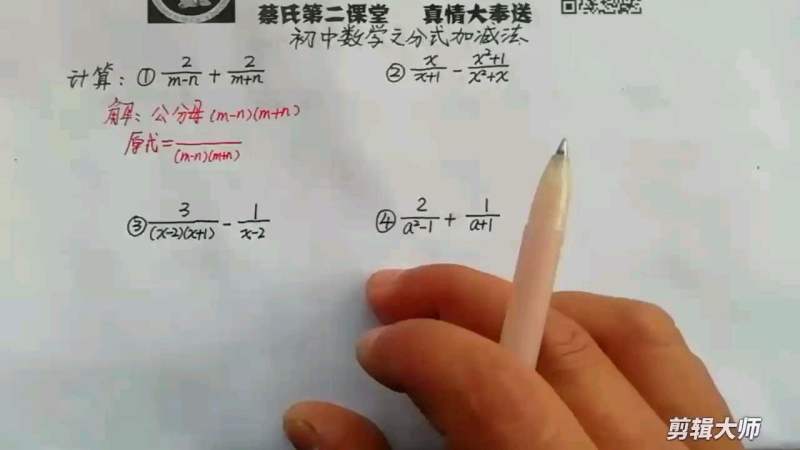 蔡氏第二课堂 真情大奉送
初中数学之分式加减法
计算: ① 2/(m-n) + 2/(m+n)
② x/(x+1) - (x²+1)/(x²+x)
解: 公分母(m-n)(m+n)
原式= /(m-n)(m+n)
③ 3/((x-2)(x+1)) - 1/(x-2)
④ 2/(a²-1) + 1/(a+1)
剪辑大师